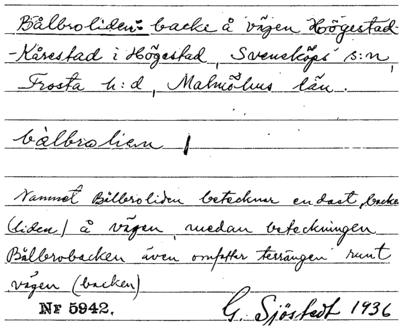 Bålbroliden: backe å vägen Högestad-
-Kårestad i Högestad, Svensköps s:n,
Frosta h:d, Malmöhus län.
bålbrolien
Namnet Bålbroliden betecknar endast backe
(liden) å vägen, medan beteckningen
Bålbrobacken även omfattar terrängen runt
vägen (backen)
Nr 5942. G. Sjöstedt 1936